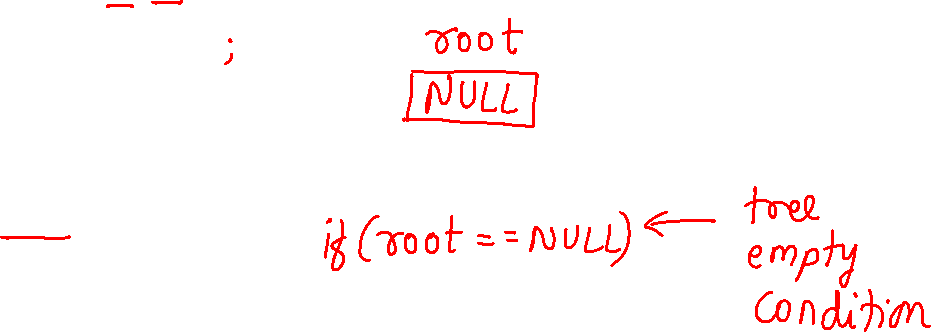 ; root
NULL
if(root==NULL) ← tree
empty
condition